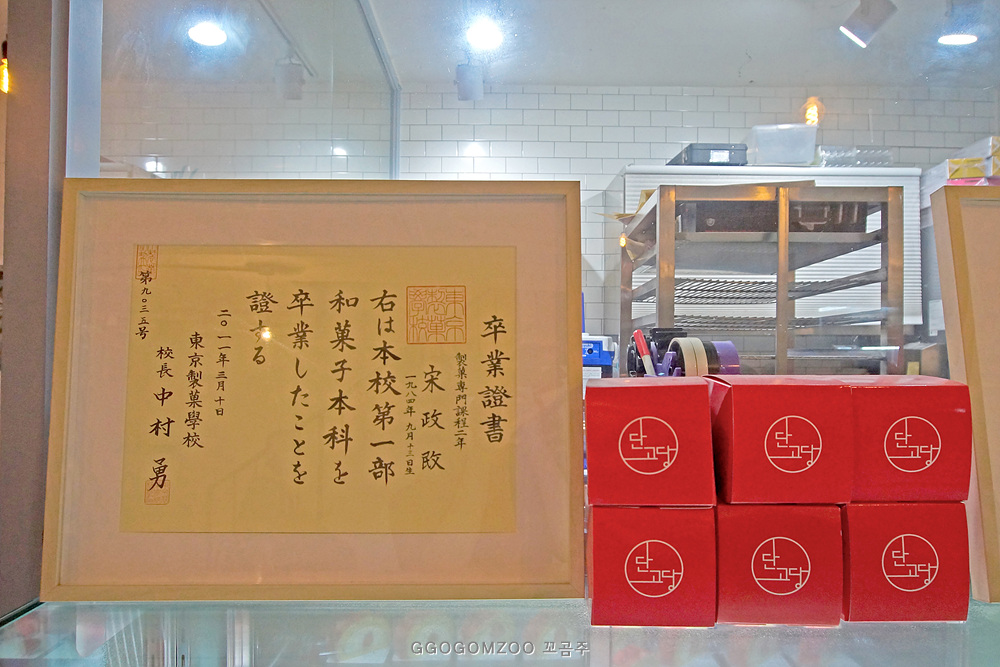 卒業證書
製菓專門課程二年
宋政
一九八四年九月十三日生
右は本校第一部
和菓子本科を
卒業したことを
證する
二〇一一年三月十日
東京製菓學校
校長 中村 勇
第九〇三五号
東京製菓學校
단고당
단고당
단고당
단고당
단고당
단고당
GGOGOMZOO 꼬곰주